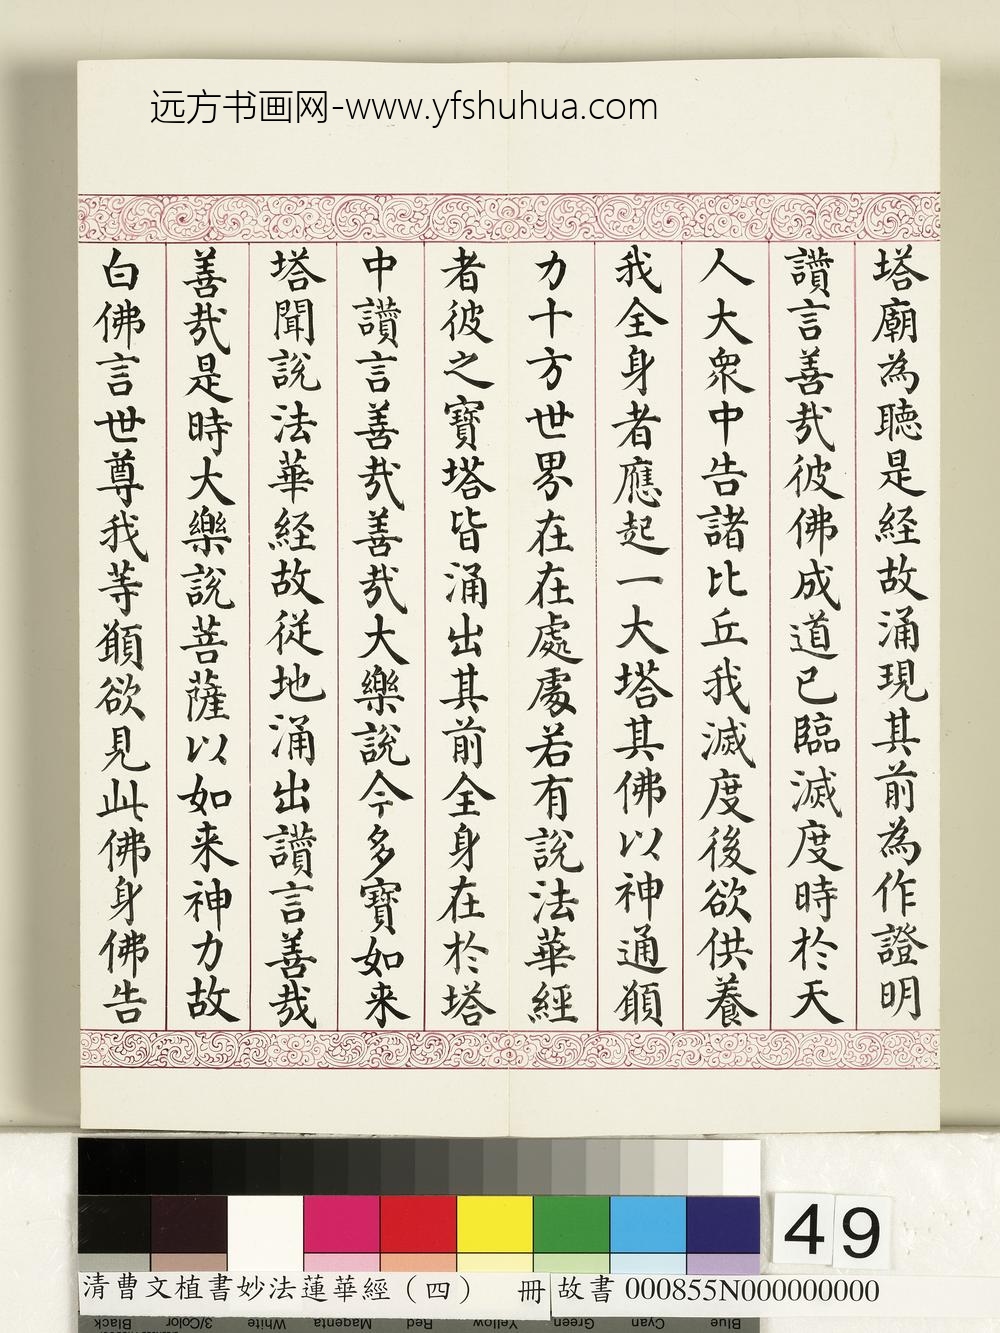 远方书画网-www.yfshuhua.com
塔廟為聽是經故涌現其前為作證明
讚言善哉彼佛成道已臨滅度時於天
人大眾中告諸比丘我滅度後欲供養
我全身者應起一大塔其佛以神通願
力十方世界在在處處若有說法華經
者彼之寶塔皆涌出其前全身在於塔
中讚言善哉善哉大樂說今多寶如来
塔聞說法華經故從地涌出讚言善哉
善哉是時大樂說菩薩以如来神力故
白佛言世尊我等願欲見此佛身佛告
49
清曹文植書妙法蓮華經（四） 冊 故書 000855N000000000
Black 3/Color White Magenta Red Yellow Green Cyan Blue